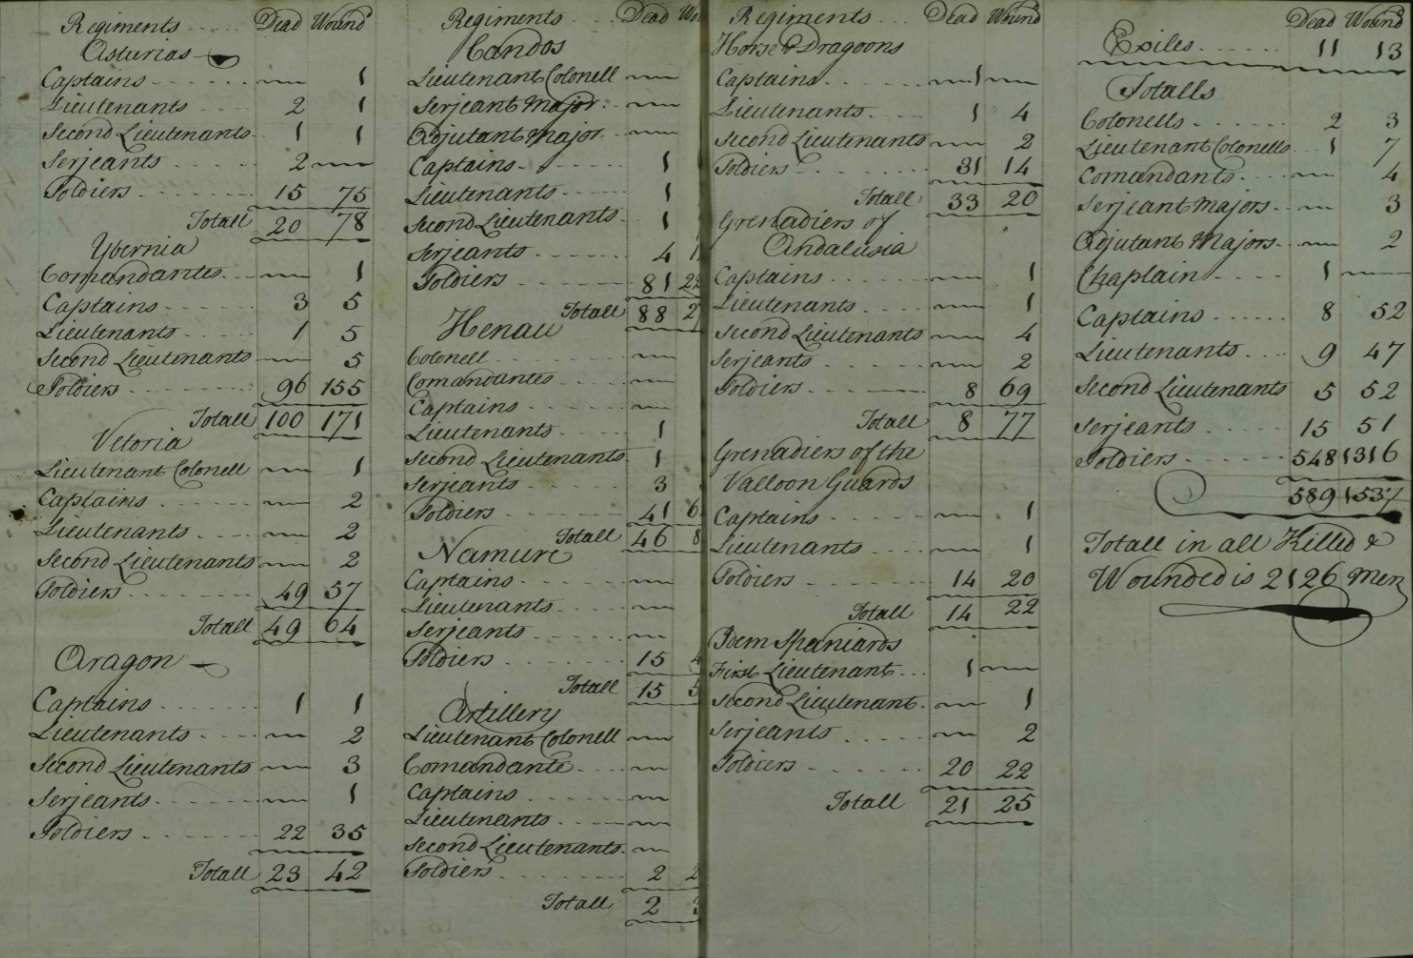 Regiments Dead Wound
Asturias
Captains — 1
Lieutenants 2 1
Second Lieutenants 1 1
Serjeants 2 —
Soldiers 15 75
Totall 20 78
Ybernia
Comandantes — 1
Captains 3 5
Lieutenants 1 5
Second Lieutenants — 5
Soldiers 96 155
Totall 100 171
Vetoria
Lieutenant Colonell — 1
Captains — 2
Lieutenants — 2
Second Lieutenants — 2
Soldiers 49 57
Totall 49 64
Aragon
Captains 1 1
Lieutenants — 2
Second Lieutenants — 3
Serjeants — 1
Soldiers 22 35
Totall 23 42
Regiments Dead
Candos
Lieutenant Colonell —
Serjeant Major —
Adjutant Major —
Captains 1
Lieutenants 1
Second Lieutenants 1
Serjeants 4
Soldiers 81
Totall 88
Henau
Colonell —
Comandantes —
Captains —
Lieutenants 1
Second Lieutenants 1
Serjeants 3
Soldiers 41
Totall 46
Namure
Captains —
Lieutenants —
Serjeants —
Soldiers 15
Totall 15
Artillery
Lieutenant Colonell —
Comandante —
Captains —
Lieutenants —
Second Lieutenants —
Soldiers 2
Totall 2
Regiments Dead Wound
Horse & Dragoons
Captains 1 —
Lieutenants 1 4
Second Lieutenants — 2
Soldiers 31 14
Totall 33 20
Grenadiers of
Andalusia
Captains — 1
Lieutenants — 1
Second Lieutenants — 4
Serjeants — 2
Soldiers 8 69
Totall 8 77
Grenadiers of the
Valloon Guards
Captains — 1
Lieutenants — 1
Soldiers 14 20
Totall 14 22
Idem Spaniards
First Lieutenant 1 —
Second Lieutenant — 1
Serjeants — 2
Soldiers 20 22
Totall 21 25
Dead Wound
Exiles 11 13
Totalls
Colonells 2 3
Lieutenant Colonells 1 7
Comandants — 4
Serjeant Majors — 3
Adjutant Majors — 2
Chaplain 1 —
Captains 8 52
Lieutenants 9 47
Second Lieutenants 5 52
Serjeants 15 51
Soldiers 548 1316
589 1537
Totall in all Killed &
Wounded is 2126 Men